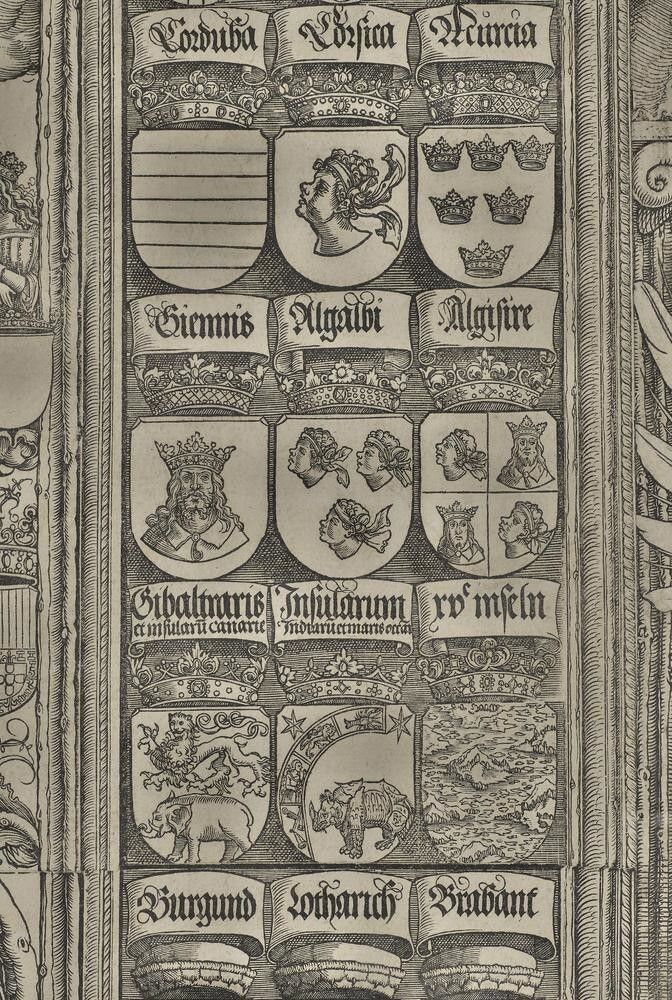 Corduba
Corsica
Murcia
Giennis
Algalbi
Algisire
Gibaltraris
et insularū canarie
Insularum
Indiarū et maris occāi
xvᶜ inseln
Burgund
Lotharich
Brabant